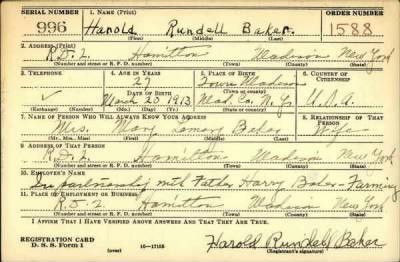 SERIAL NUMBER 1. NAME (Print) ORDER NUMBER
996 Harold Rundell Baker 1588
(First) (Middle) (Last)
2. ADDRESS (Print)
R.D.2. Hamilton Madison New York
(Number and street or R. F. D. number) (Town) (County) (State)
3. TELEPHONE 4. AGE IN YEARS 5. PLACE OF BIRTH 6. COUNTRY OF CITIZENSHIP
27 Town Madison
DATE OF BIRTH (Town or county)
✓ March 20 1913 Mad. Co. N.Y. U.S.A.
(Exchange) (Number) (Mo.) (Day) (Yr.) (State or country)
7. NAME OF PERSON WHO WILL ALWAYS KNOW YOUR ADDRESS 8. RELATIONSHIP OF THAT PERSON
Mrs. Mary Baker Wife
(Mr., Mrs., Miss) (First) (Middle) (Last)
9. ADDRESS OF THAT PERSON
R.D.2. Hamilton Madison New York
(Number and street or R. F. D. number) (Town) (County) (State)
10. EMPLOYER'S NAME
In partnership with Father Harry Baker - Farming
11. PLACE OF EMPLOYMENT OR BUSINESS
R.D.2 Hamilton Madison New York
(Number and street or R. F. D. number) (Town) (County) (State)
I AFFIRM THAT I HAVE VERIFIED ABOVE ANSWERS AND THAT THEY ARE TRUE.
REGISTRATION CARD
D. S. S. Form 1 (over) 16—17105 Harold Rundell Baker
(Registrant's signature)